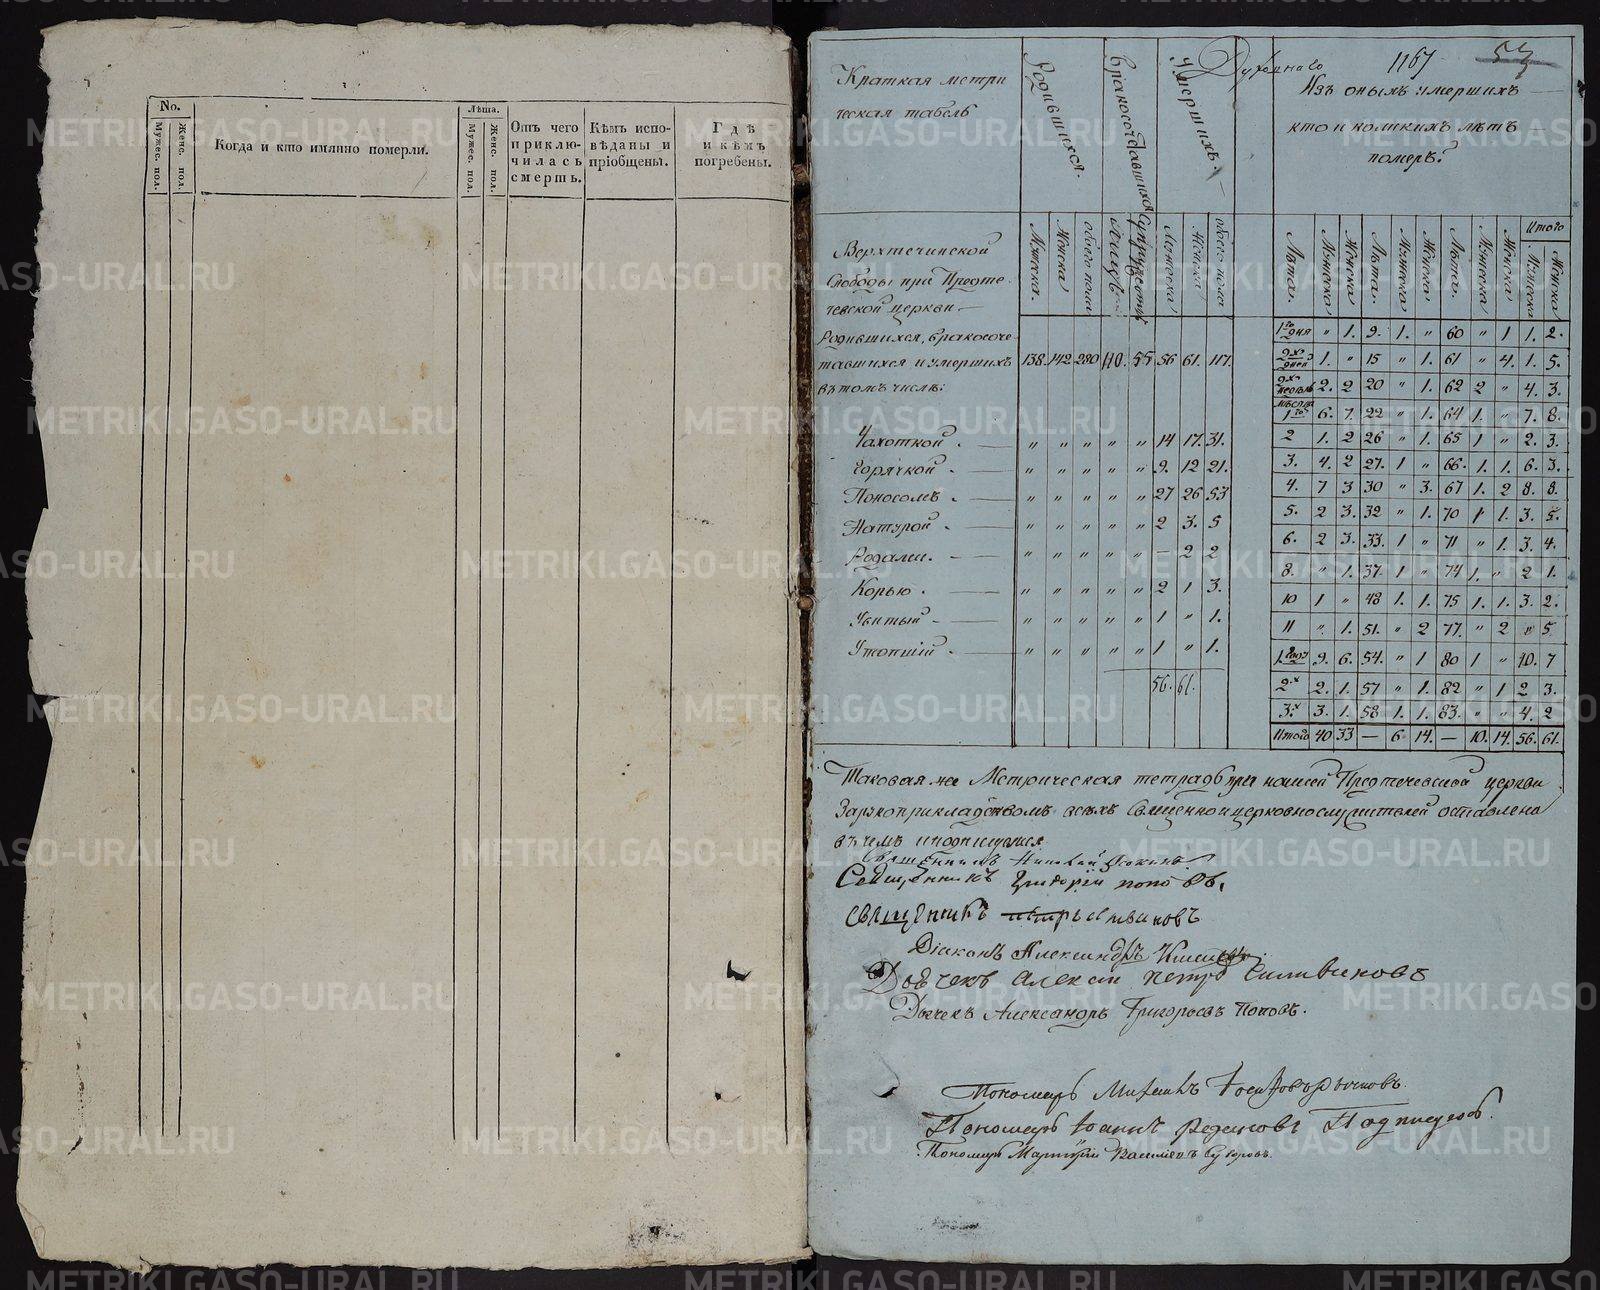 No.
Мужес. пол.
Женс. пол.
Когда и кто имянно померли.
Лѣта.
Мужес. пол.
Женс. пол.
Отъ чего
приклю-
чилась
смерть.
Кѣмъ испо-
вѣданы и
пріобщены.
Гдѣ
и кѣмъ
погребены.
1167 53
Краткая метри
ческая табель
Родившихся.
Бракосочетавшихся
Умершихъ.
Изъ оныхъ умершихъ
кто и коликихъ лѣтъ
померъ?
Верхтечинской
Слободы при Предте-
чевской церкви
Родившихся, бракосоче-
тавшихся и умершихъ 138. 142 280 110. 55 56 61. 117.
въ томъ числѣ:
Мужеска. Женска обоего пола Мужеска Женска обоего пола
Чахоткой. " " " " " 14 17. 31.
Горячкой. " " " " " 9. 12 21.
Поносомъ. " " " " " 27 26 53
Натурой. " " " " " 2 3. 5
Родами. " " " " " — 2 2
Корью. " " " " " 2 1 3.
Убитый " " " " " 1 " 1.
Утопшій. " " " " " 1 " 1.
56. 61.
Лѣта. Мужеска Женска Лѣта. Мужеска Женска Лѣта. Мужеска Женска Итого Мужеска Женска
1го дня " 1. 9. 1. " 60 " 1 1. 2.
2х дней 1. " 15 " 1. 61 " 4. 1. 5.
2х недѣль 2. 2 20 " 1. 62 2 " 4. 3.
мѣсяца 1го 6. 7. 22 " 1. 64 1. " 7. 8.
2 1. 2 26 " 1. 65 1 " 2. 3.
3. 4. 2 27. 1 " 66. 1. 1. 6. 3.
4. 7 3 30 " 3. 67 1. 2 8. 8.
5. 2 3. 32 " 1. 70 1 1. 3. 5.
6. 2 3. 33. 1 " 71 " 1. 3. 4.
8. " 1. 37. 1 " 74 1. " 2 1.
10 1 " 48 1. 1. 75 1. 1. 3. 2.
11 " 1. 51. " 2 77. " 2 " 5
1. году 9. 6. 54. " 1 80 1 " 10. 7
2х 2. 1. 57 " 1. 82 " 1 2 3.
3х 3. 1. 58 1. 1. 83. " " 4. 2
Итого 40 33 — 6 14. — 10. 14. 56. 61.
Таковая же Метрическая тетрадь при нашей Предтечевской церкви
За рукоприкладствомъ всѣхъ Священноицерковнослужителей оставлена
въ чемъ и подпишемся
Священникъ Николай
Священникъ Григорій Поповъ.
Священникъ Петръ
Діаконъ Александръ
Дьячекъ Алексѣй Петровъ
Дьячекъ Александръ Григорьевъ Поповъ.
Пономарь Михаилъ
Пономарь Іоаннъ
Пономарь
METRIKI.GASO-URAL.RU